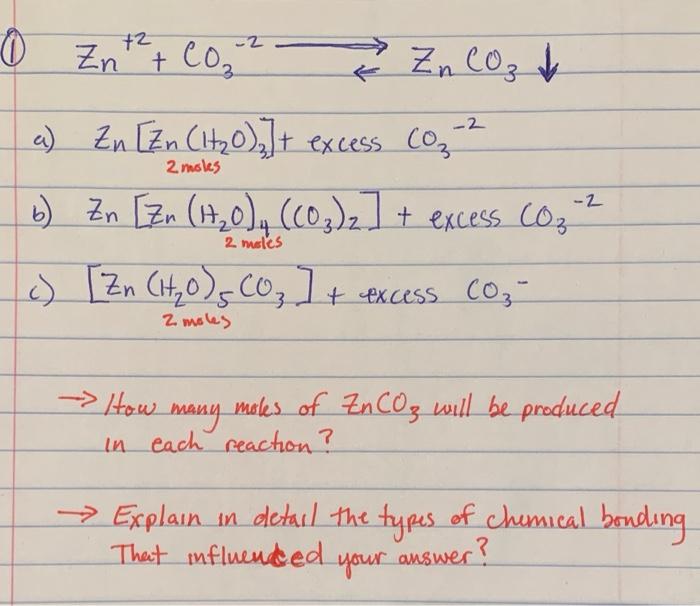 ① Zn⁺² + CO₃⁻² ⟶ ← ZnCO₃ ↓
a) Zn[Zn(H₂O)₃]+ excess CO₃⁻²
2 moles
b) Zn [Zn (H₂O)₄ (CO₃)₂] + excess CO₃⁻²
2 moles
c) [Zn (H₂O)₅ CO₃] + excess CO₃⁻
2 moles
→ How many moles of ZnCO₃ will be produced
in each reaction?
→ Explain in detail the types of chemical bonding
That influenced your answer?